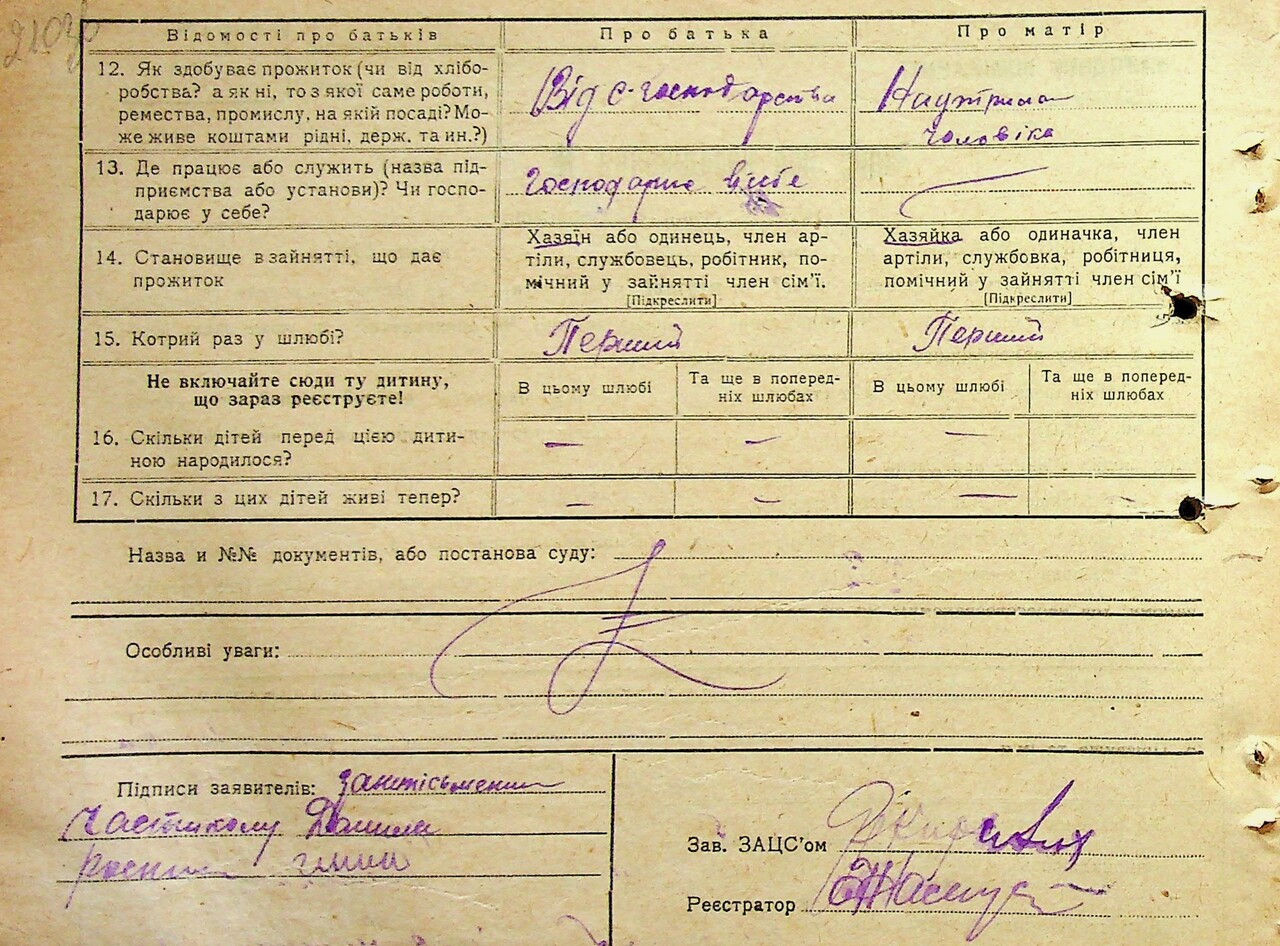 Відомості про батьків
Про батька
Про матір
12. Як здобуває прожиток (чи від хлібо-
робства? а як ні, то з якої саме роботи,
ремества, промислу, на якій посаді? Мо-
же живе коштами рідні, держ. та ин.?)
Від с-господарства
На утриман
чоловіка
13. Де працює або служить (назва під-
приємства або установи)? Чи госпо-
дарює у себе?
Господарює
14. Становище в зайнятті, що дає
прожиток
Хазяїн або одинець, член ар-
тіли, службовець, робітник, по-
мічний у зайнятті член сім'ї.
[Підкреслити]
Хазяйка або одиначка, член
артіли, службовка, робітниця,
помічний у зайнятті член сім'ї
[Підкреслити]
15. Котрий раз у шлюбі?
Перший
Перший
Не включайте сюди ту дитину,
що зараз реєструєте!
В цьому шлюбі
Та ще в поперед-
ніх шлюбах
В цьому шлюбі
Та ще в поперед-
ніх шлюбах
16. Скільки дітей перед цією дити-
ною народилося?
— — —
17. Скільки з цих дітей живі тепер?
— — —
Назва и №№ документів, або постанова суду:
Особливі уваги:
Підписи заявителів:
Данила
Зав. ЗАЦС'ом
Реєстратор